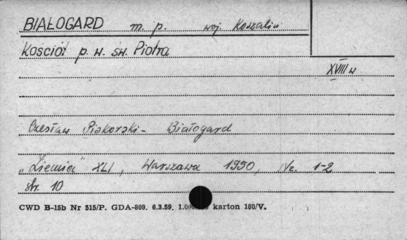 BIAŁOGARD m. p. woj. Koszalin
Kościół p. w. św. Piotra
XVIII w
Czesław Piskorski - Białogard
"Ziemia" XLI, Warszawa 1950, Nr. 1-2
str. 10
CWD B-15b Nr 515/P. GDA-809. 6.3.59, karton 180/V.